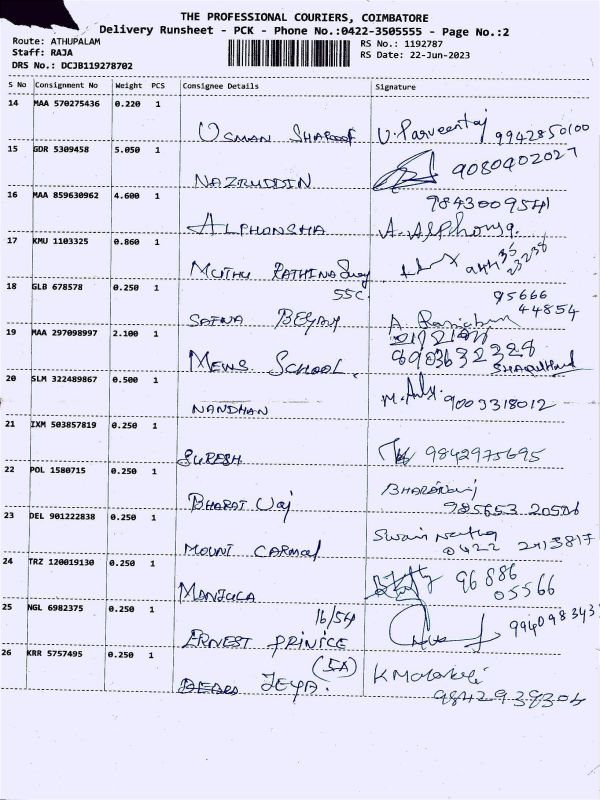 THE PROFESSIONAL COURIERS, COIMBATORE
Delivery Runsheet - PCK - Phone No.:0422-3505555 - Page No.:2
Route: ATHUPALAM
Staff: RAJA
DRS No.: DCJB119278702
RS No.: 1192787
RS Date: 22-Jun-2023
S No Consignment No Weight PCS Consignee Details Signature
14 MAA 570275436 0.220 1
USMAN 9942850100
15 GDR 5309458 5.050 1
NAZIRUDDIN 9080902027
16 MAA 859630962 4.600 1 9843009541
ALPHONSHA A. Alphonsa
17 KMU 1103325 0.860 1
MUTHU RATHINA
55C.
18 GLB 678578 0.250 1 95666
44854
BEGAM
19 MAA 297098997 2.100 1
MEWS SCHOOL. 8903632328
20 SLM 322489867 0.500 1
NANDHAN 9003318012
21 IXM 503857819 0.250 1
SURESH 9842975695
22 POL 1580715 0.250 1
BHARAT
23 DEL 901222838 0.250 1
MOUNT CARMEL 0422 2413817
24 TRZ 120019130 0.250 1 96886
MANJULA 05566
25 NGL 6982375 0.250 1 16/54
ERNEST PRINICE
26 KRR 5757495 0.250 1 (5A)
JEYA.